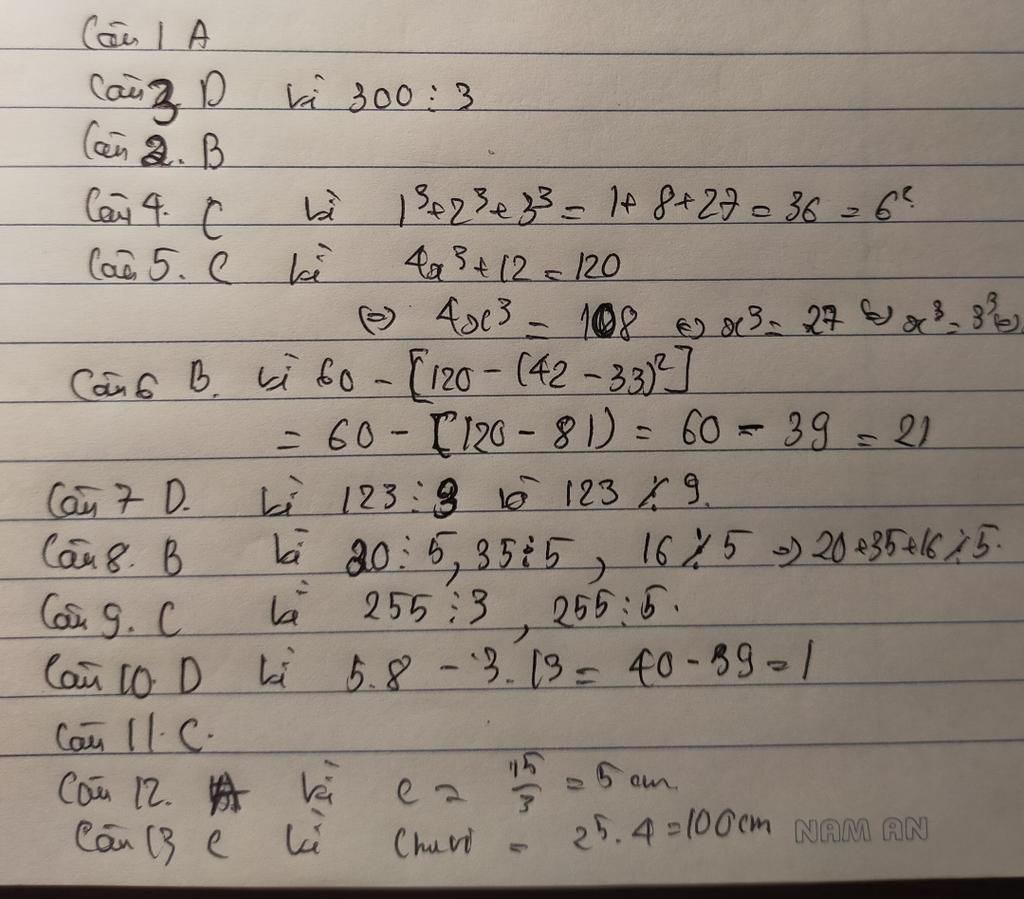 Câu 1 A
Câu 3 D vì 300 ⋮ 3
Câu 2. B
Câu 4. C vì 1³+2³+3³ = 1+8+27 = 36 = 6²
Câu 5. C vì 4x³+12 = 120
⇔ 4x³ = 108 ⇔ x³ = 27 ⇔ x³ = 3³ ⇔
Câu 6 B. vì 60 - [120 - (42 - 33)²]
= 60 - [120 - 81) = 60 - 39 = 21
Câu 7 D. vì 123 ⋮ 3 và 123 ⋮̸ 9.
Câu 8. B vì 20 ⋮ 5, 35 ⋮ 5, 16 ⋮̸ 5 ⇒ 20+35+16 ⋮̸ 5.
Câu 9. C vì 255 ⋮ 3, 255 ⋮ 5.
Câu 10. D vì 5.8 - 3.13 = 40 - 39 = 1
Câu 11. C.
Câu 12. A vì c = 15/3 = 5 cm
Câu 13 C vì Chu vi = 25.4 = 100cm
NAM AN